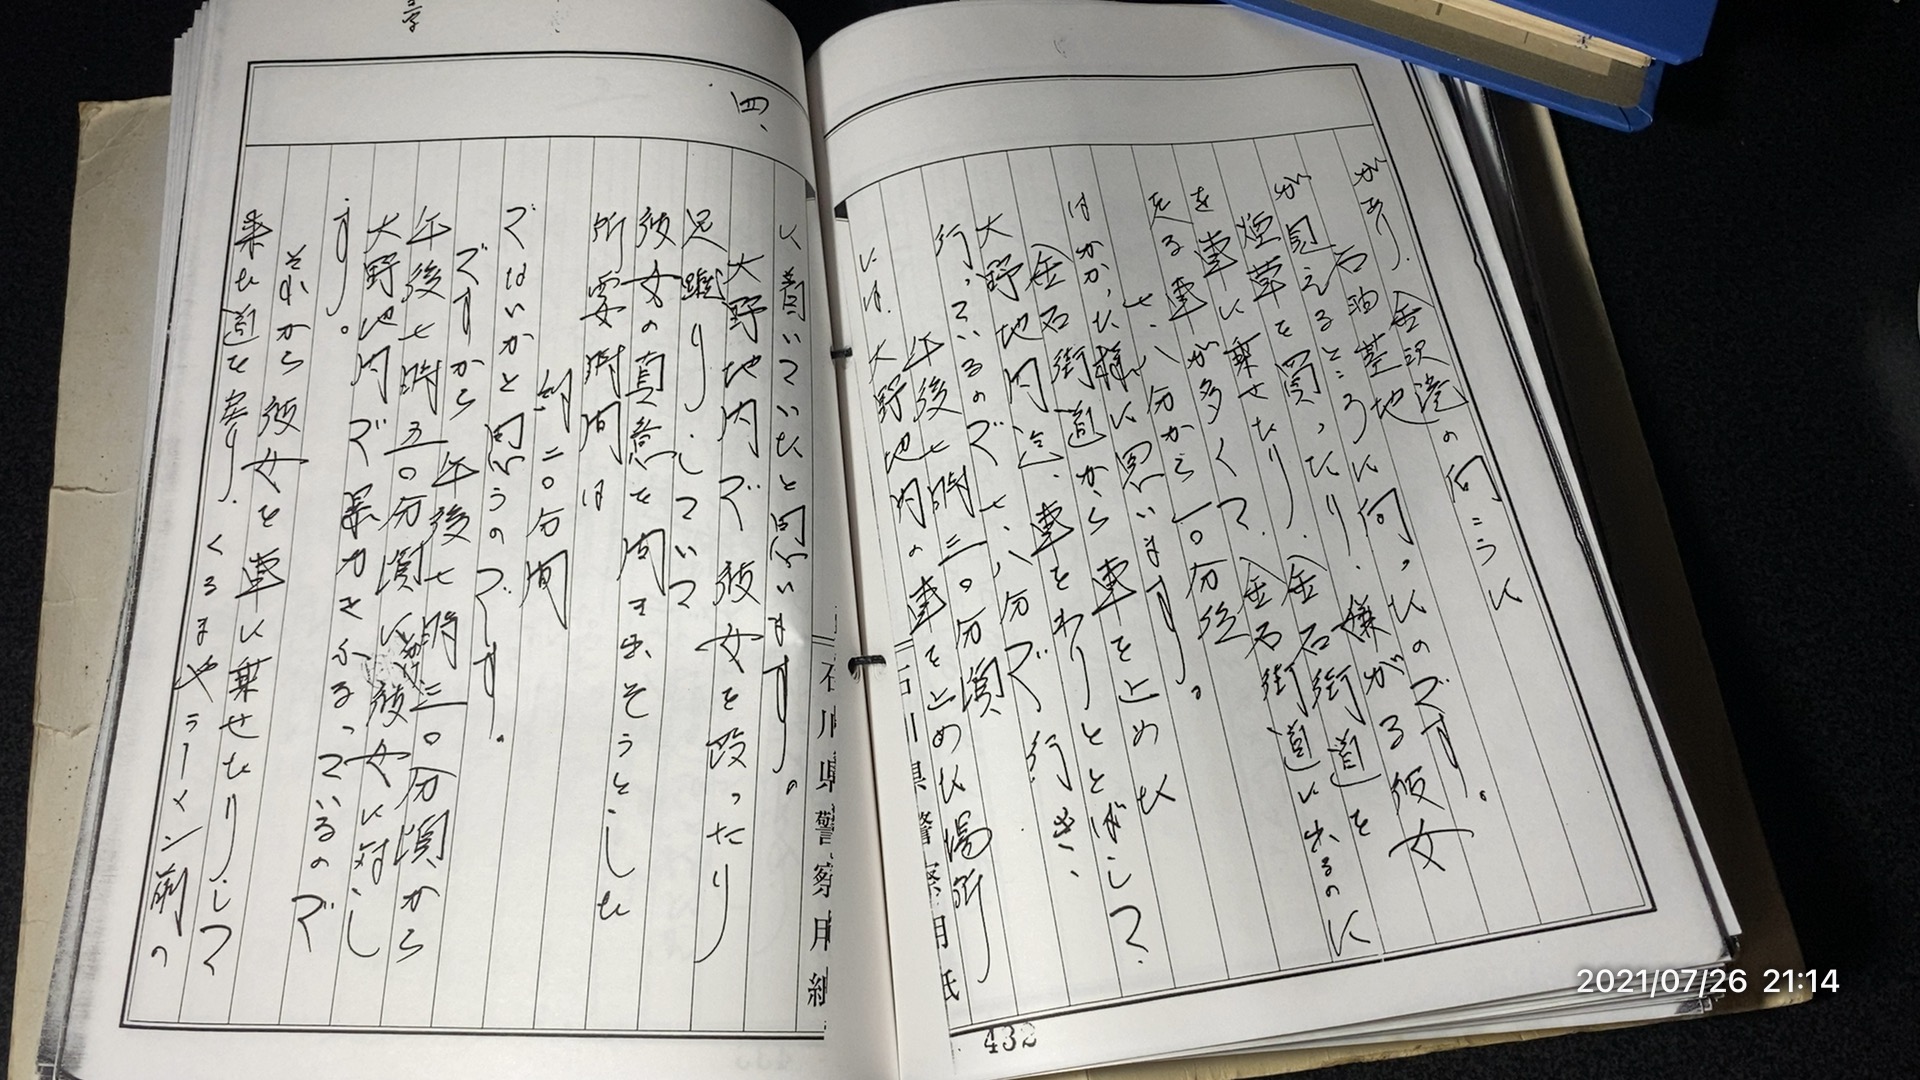 があり、金沢港の向こうに
石油基地
が見えるところに向ったのです。
煙草を買ったり、嫌がる彼女
を車に乗せたり、金石街道を
走る車が多くて、金石街道に出るのに
七、八分から一〇分位
はかかった様に思います。
金石街道から車を止めた
大野地内迄、車をわりととばして
行っているので七、八分で行き、
午後七時三〇分頃
には、大野地内の車を止めた場所
石川県警察用紙
432
に着いていたと思います。
四、
大野地内で彼女を殴ったり
足蹴りしていて
彼女の真意を聞き出そうとした
所要時間は
約二〇分間
ではないかと思うのです。
ですから午後七時三〇分頃から
午後七時五〇分頃に彼女に対し
大野地内で暴力をふるっているので
す。
それから彼女を車に乗せたりして
来た道を戻り、くるまやラーメン前の
石川県警察用紙
2021/07/26 21:14